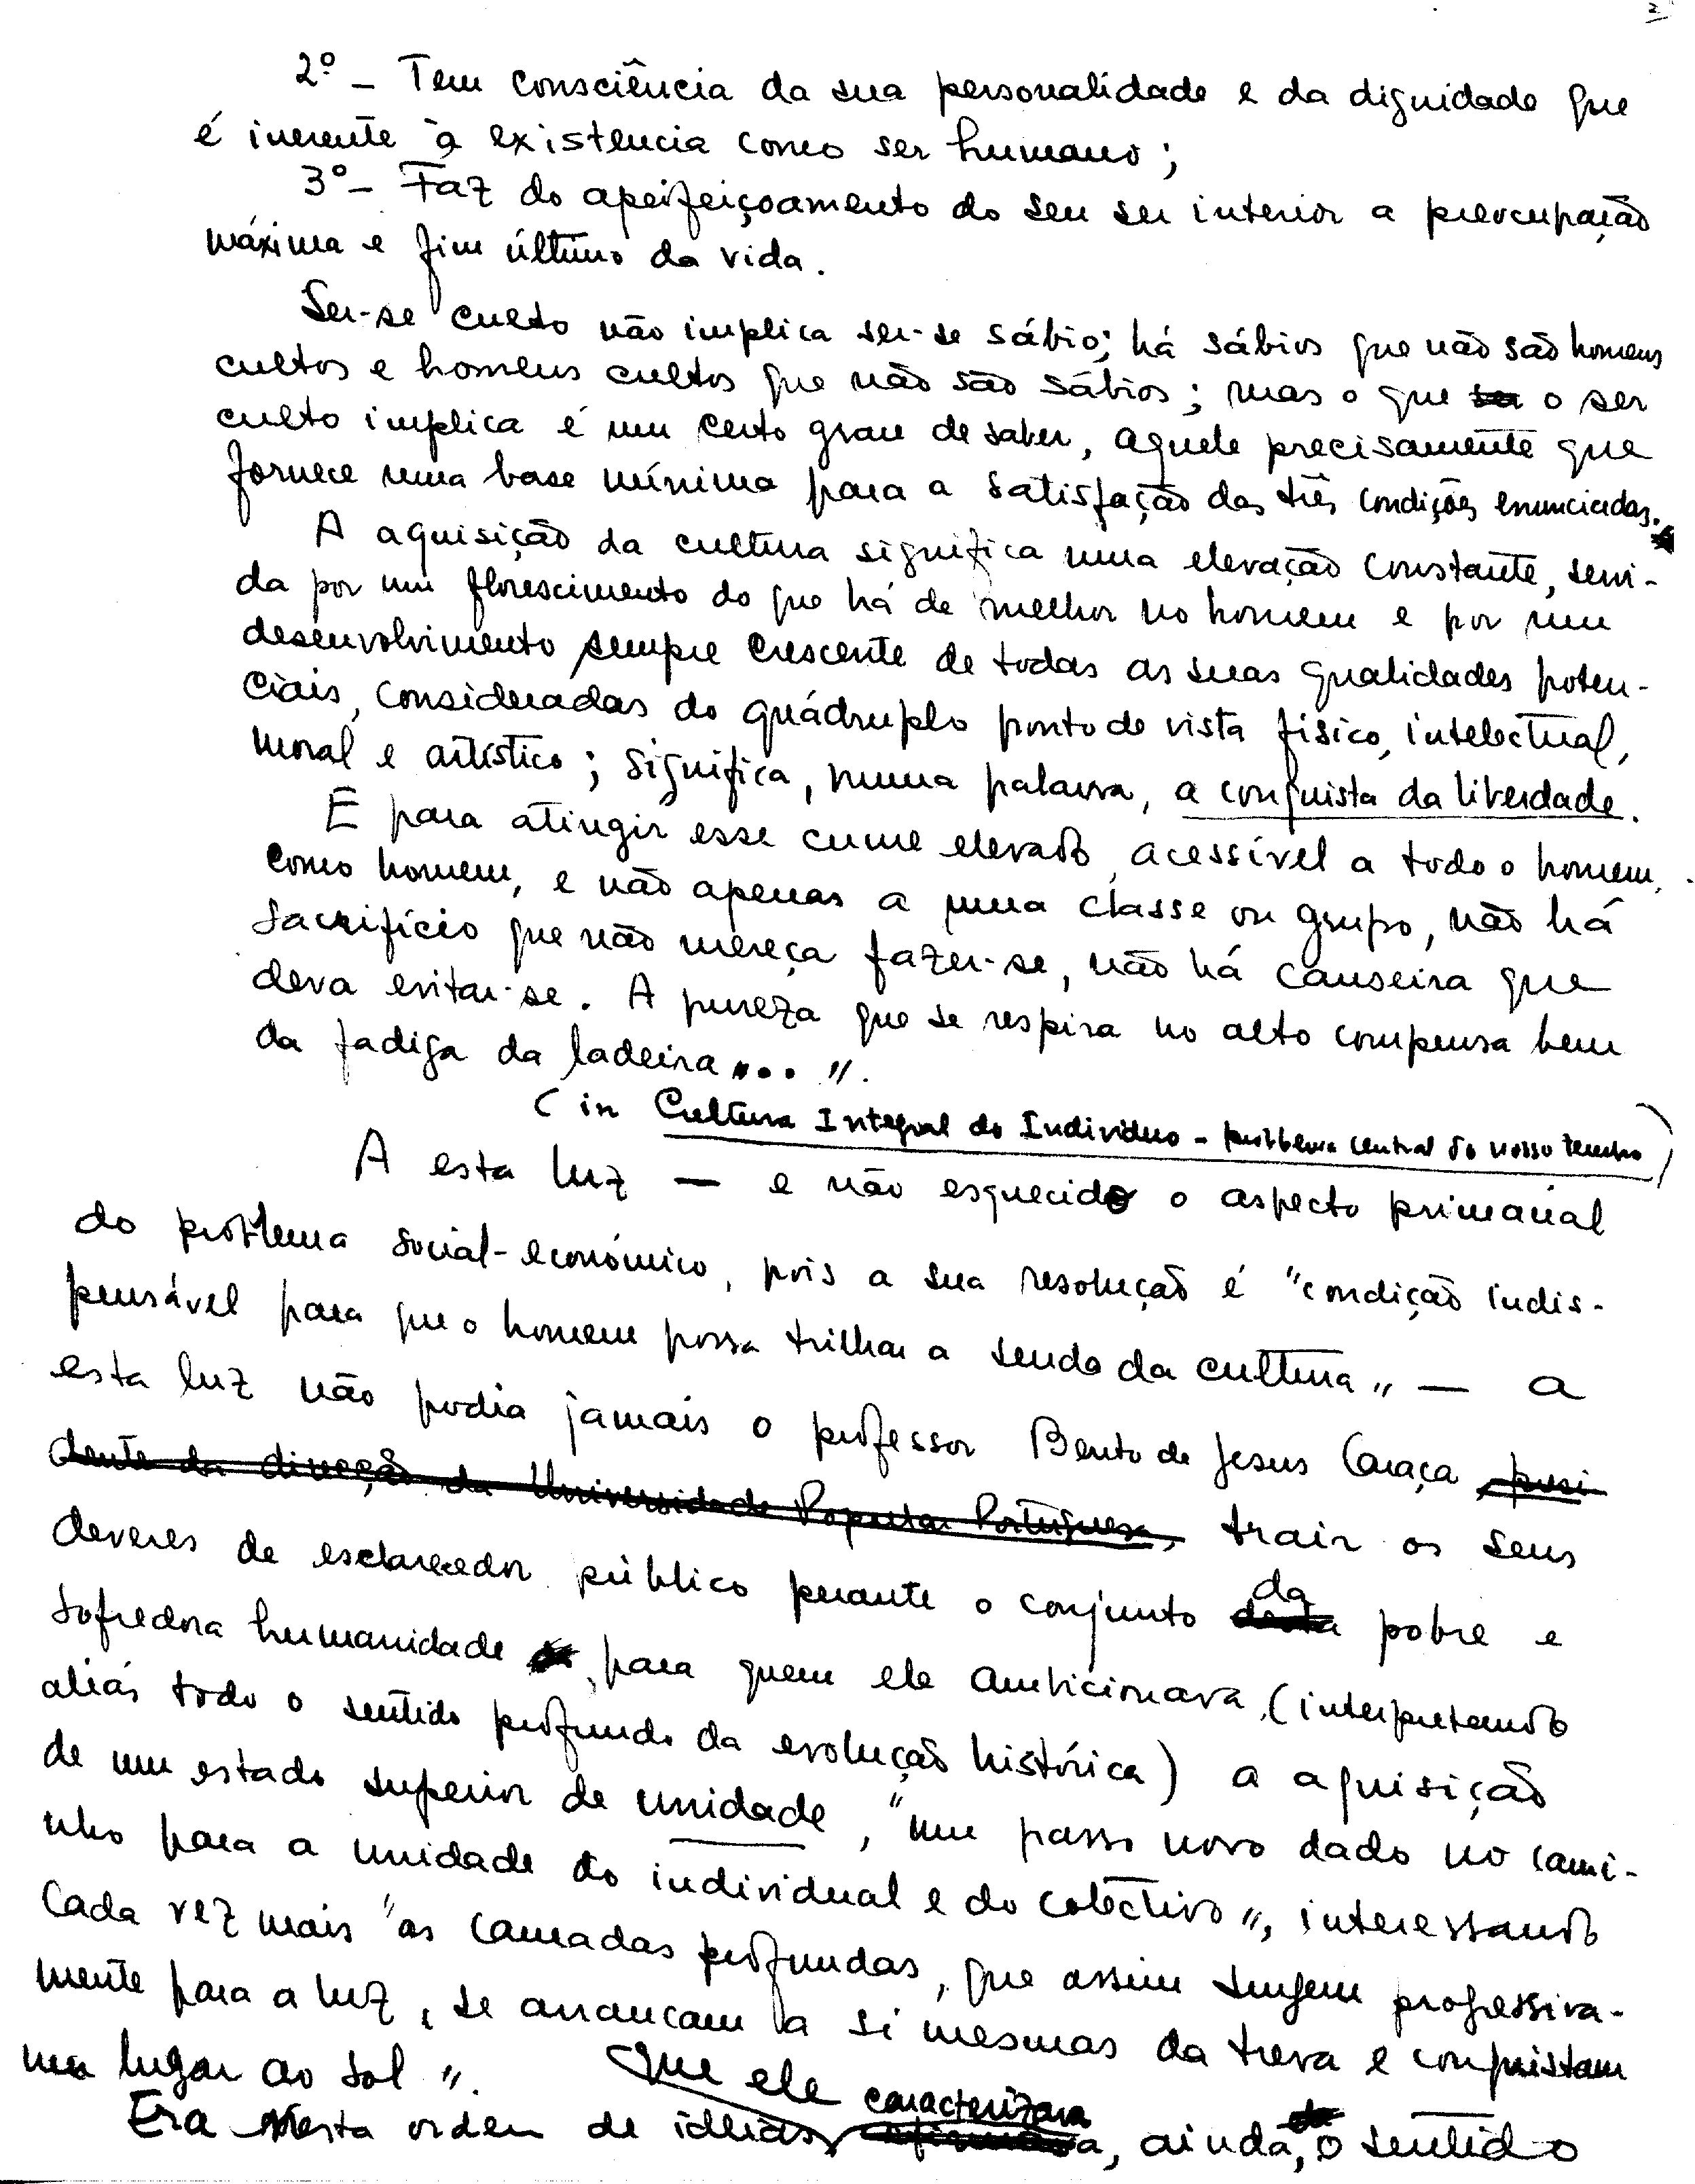 2
2º - Tem consciência da sua personalidade e da dignidade que
é inerente à existencia como ser humano;
3º - Faz do aperfeiçoamento do seu ser interior a preocupação
máxima e fim último da vida.
Ser-se culto não implica ser-se sábio; há sábios que não são homens
cultos e homens cultos que não são sábios; mas o que o ser
culto implica é um certo grau de saber, aquele precisamente que
fornece uma base mínima para a satisfação das três condições enunciadas.
A aquisição da cultura significa uma elevação constante, servi-
da por um florescimento do que há de melhor no homem e por um
desenvolvimento sempre crescente de todas as suas qualidades poten-
ciais, consideradas do quádruplo ponto de vista físico, intelectual,
moral e artístico; significa, numa palavra, a conquista da liberdade.
E para atingir esse cume elevado, acessível a todo o homem,
como homem, e não apenas a uma classe ou grupo, não há
sacrifício que não mereça fazer-se, não há canseira que
deva evitar-se. A pureza que se respira no alto compensa bem
da fadiga da ladeira..."
(in Cultura Integral do Individuo - problema central do nosso tempo)
A esta luz — e não esquecido o aspecto primarial
do problema social-económico, pois a sua resolução é "condição indis-
pensável para que o homem possa trilhar a senda da cultura" — a
esta luz não podia jamais o professor Bento de Jesus Caraça, presi
dente da direcção da Universidade Popular Portuguesa, trair os seus
deveres de esclarecedor público perante o conjunto da pobre e
sofredora humanidade, para quem ele ambicionava (interpretando
aliás todo o sentido profundo da evolução histórica) a aquisição
de um estado superior de unidade, "um passo novo dado no cami-
nho para a unidade do individual e do colectivo", interessando
cada vez mais "as camadas profundas, que assim surgem progressiva-
mente para a luz, se arrancam a si mesmas da treva e conquistam
um lugar ao sol".
Era nesta orden de idleias que ele caracterizava, ainda, o sentido